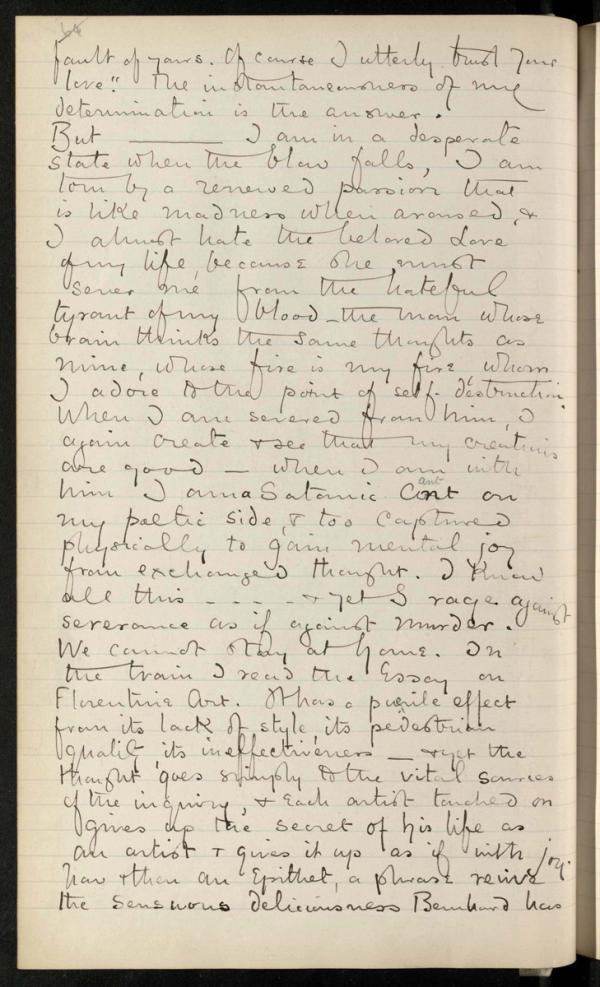 fault of yours. Of course I utterly trust your
love." The instantaneousness of my
determination is the answer.
But ——— I am in a desperate
state when the blow falls, I am
torn by a renewed passion that
is like madness when aroused, &
I almost hate the beloved Love
of my life, because she must
sever me from the hateful
tyrant of my blood – the man whose
brain thinks the same thoughts as
mine, whose fire is my fire whom
I adore to the point of self-destruction.
When I am severed from him, I
again create & see that my creations
are good – when I am with
him I am a Satanic Cant on
my poetic side, & too captured
physically to gain mental joy
from exchanged thought. I know
all this - - - - & yet I rage against
severance as if against murder.
We cannot stay at home. In
the train I read the Essay on
Florentine Art. It has a puerile effect
from its lack of style, its pedestrian
quality, its ineffectiveness – & yet the
thought goes simply to the vital sources
of the inquiry, & each artist touched on
gives up the secret of his life as
an artist & gives it up as if with joy.
Now & then an Epithet, a phrase
the sensuous deliciousness Bernhard has